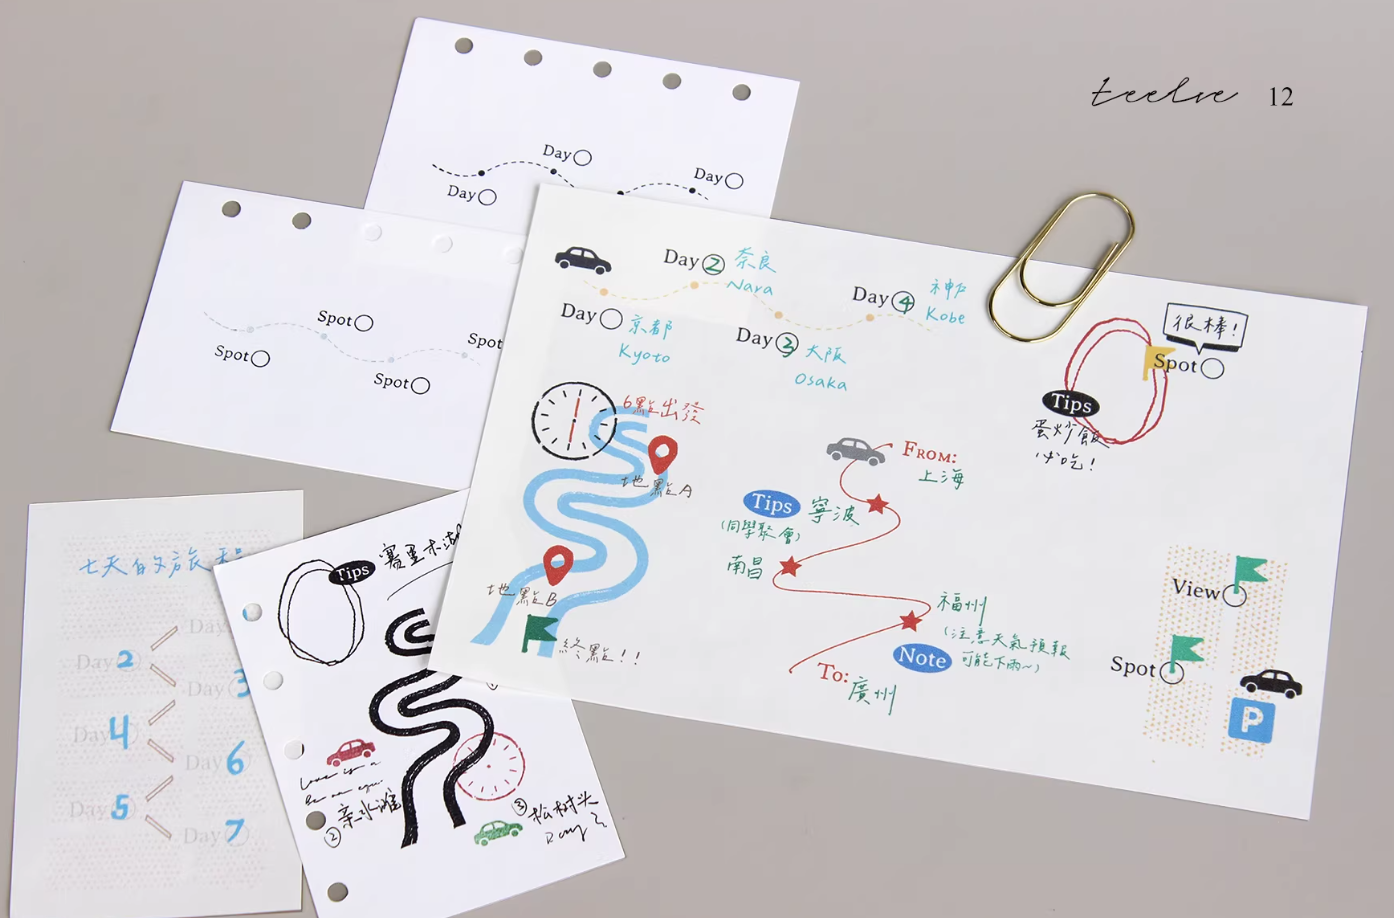 teelve 12
Day
Day
Day
Spot
Spot
Spot
Spot
Day 2 奈良
Nara
Day 4 神戶
Kobe
Day 京都
Kyoto
Day 3 大阪
Osaka
很棒!
Spot
Tips
蛋炒飯
必吃!
6點出發
地點A
地點B
終點!!
FROM:
上海
Tips 寧波
(同學聚會)
南昌
福州
(注意天氣預報
可能下雨~)
Note
To: 廣州
View
Spot
P
七天的旅程
Day
Day 2
Day 3
Day 4
Day 6
Day 5
Day 7
Tips
赛里木湖
② 亲水滩
③ 松树头